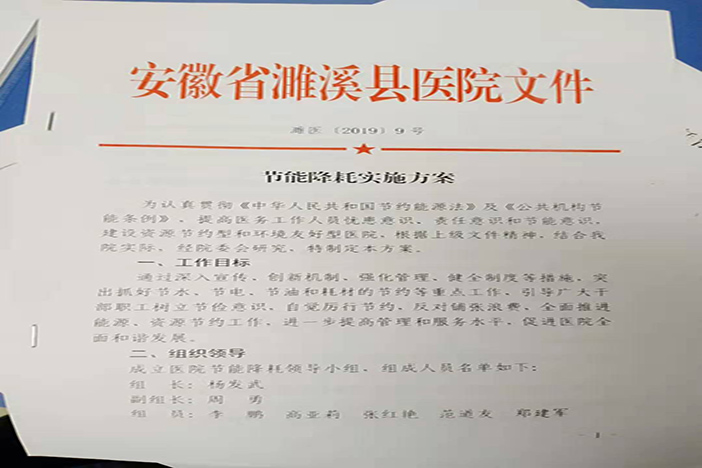 安徽省濉溪县医院文件
濉医〔2019〕9号
节能降耗实施方案
为认真贯彻《中华人民共和国节约能源法》及《公共机构节
能条例》，提高医务工作人员忧患意识、责任意识和节能意识，
建设资源节约型和环境友好型医院，根据上级文件精神，结合我
院实际，经院委会研究，特制定本方案。
一、工作目标
通过深入宣传、创新机制、强化管理、健全制度等措施，突
出抓好节水、节电、节油和耗材的节约等重点工作，引导广大干
部职工树立节俭意识，自觉厉行节约，反对铺张浪费，全面推进
能源、资源节约工作，进一步提高管理和服务水平，促进医院全
面和谐发展。
二、组织领导
成立医院节能降耗领导小组，组成人员名单如下：
组 长：杨发武
副组长：周 勇
组 员：李 鹏 高亚莉 张红艳 范道友 郑建军
- 1 -